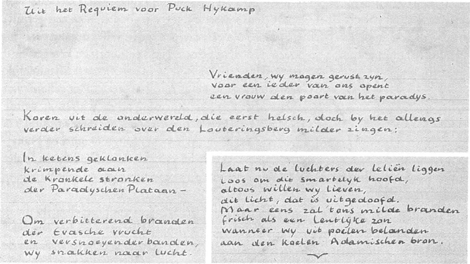 Uit het Requiem voor Puck Nykamp
Vrienden, wy mogen gerust zyn,
voor een ieder van ons opent
een vrouw den poort van het paradys.
Koren uit de onderwereld, die eerst helsch, doch by het allengs
verder schreiden over den Louteringsberg milder zingen:
In ketens geklonken
krimpende aan
de kronkele stronken
der Paradyschen Plataan —
Om verbitterend branden
der Evasche vrucht
en versnoeyender banden,
wy snakken naar lucht.
Laat nu de luchters der leliën liggen
loos om dit smartelyk hoofd,
altoos willen wy lieven,
dit licht, dat is uitgedoofd.
Maar eens zal tons milde branden
frisch als een lentlyke zon
wanneer wy uit poelen belanden
aan den koelen Adamischen bron.